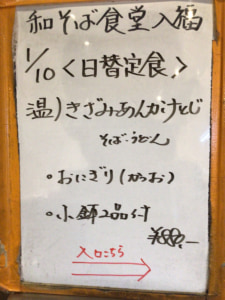 和そば食堂入福
1/10<日替定食>
温)きざみあんかけとじ
そば・うどん
・おにぎり(かつお)
・小鉢2品付
¥880.-
入口こちら